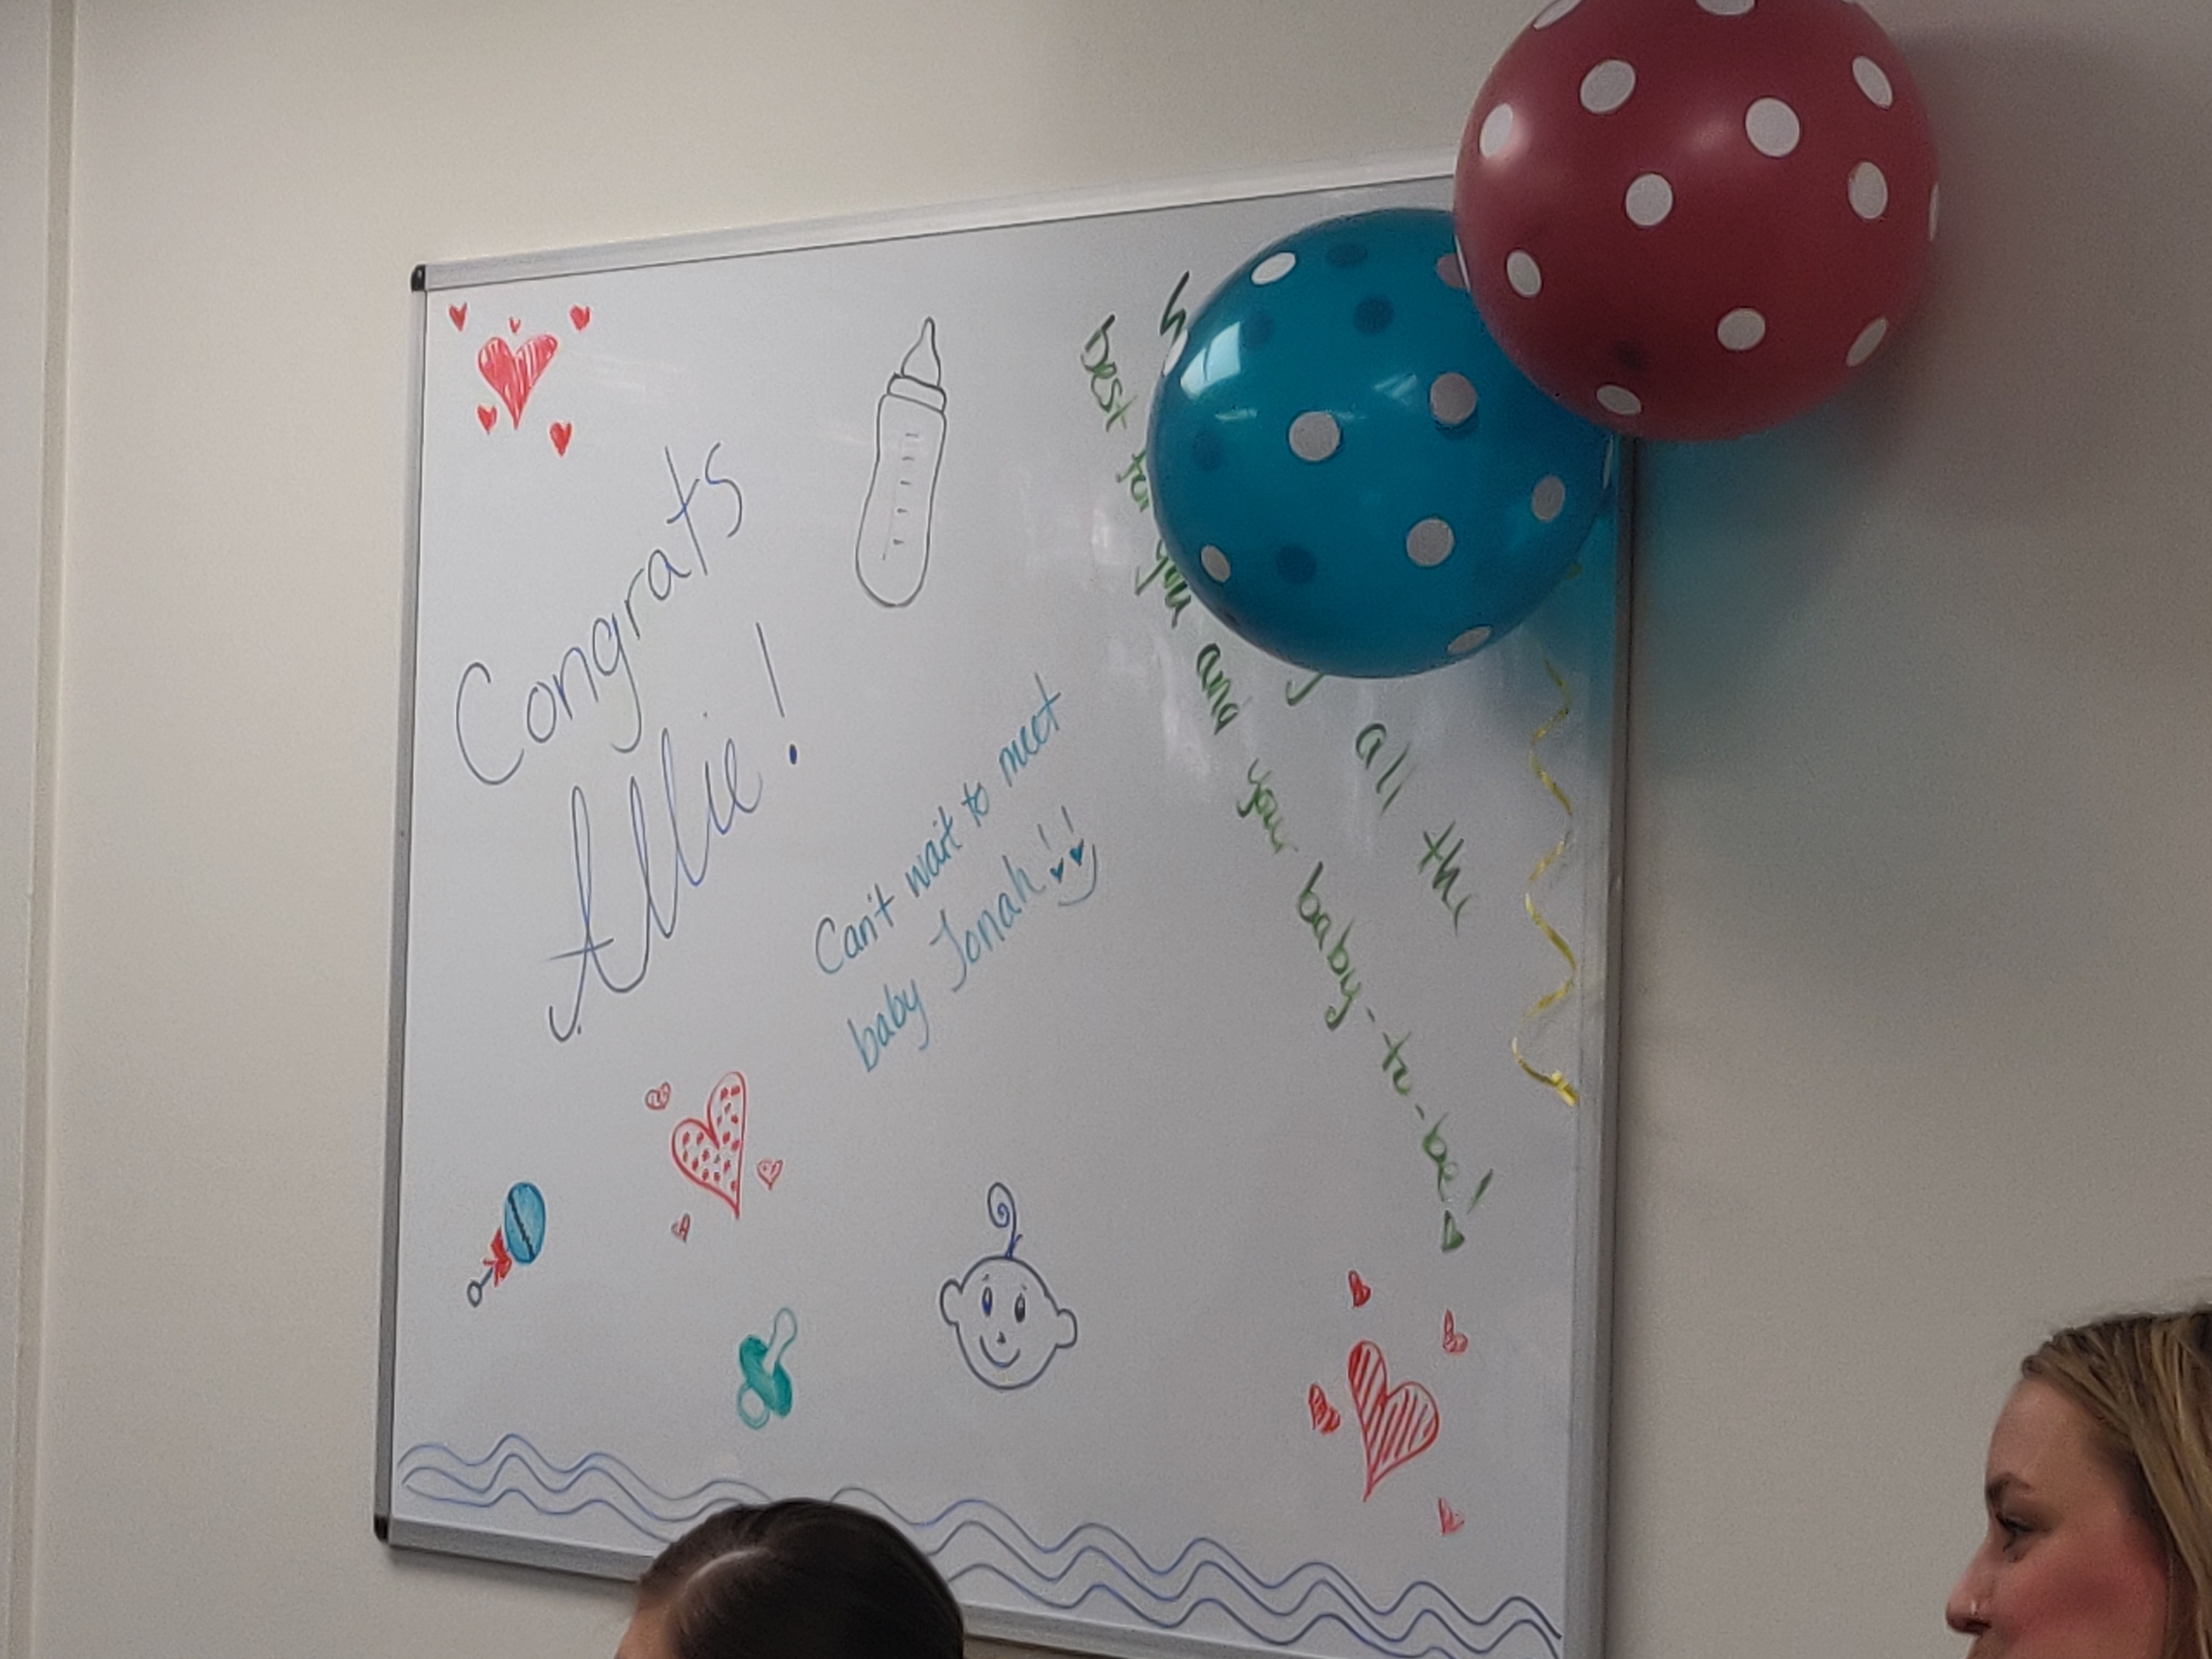 Congrats
Allie!
Can't wait to meet
baby Jonah!!
all the
best for you and your baby-to-be!